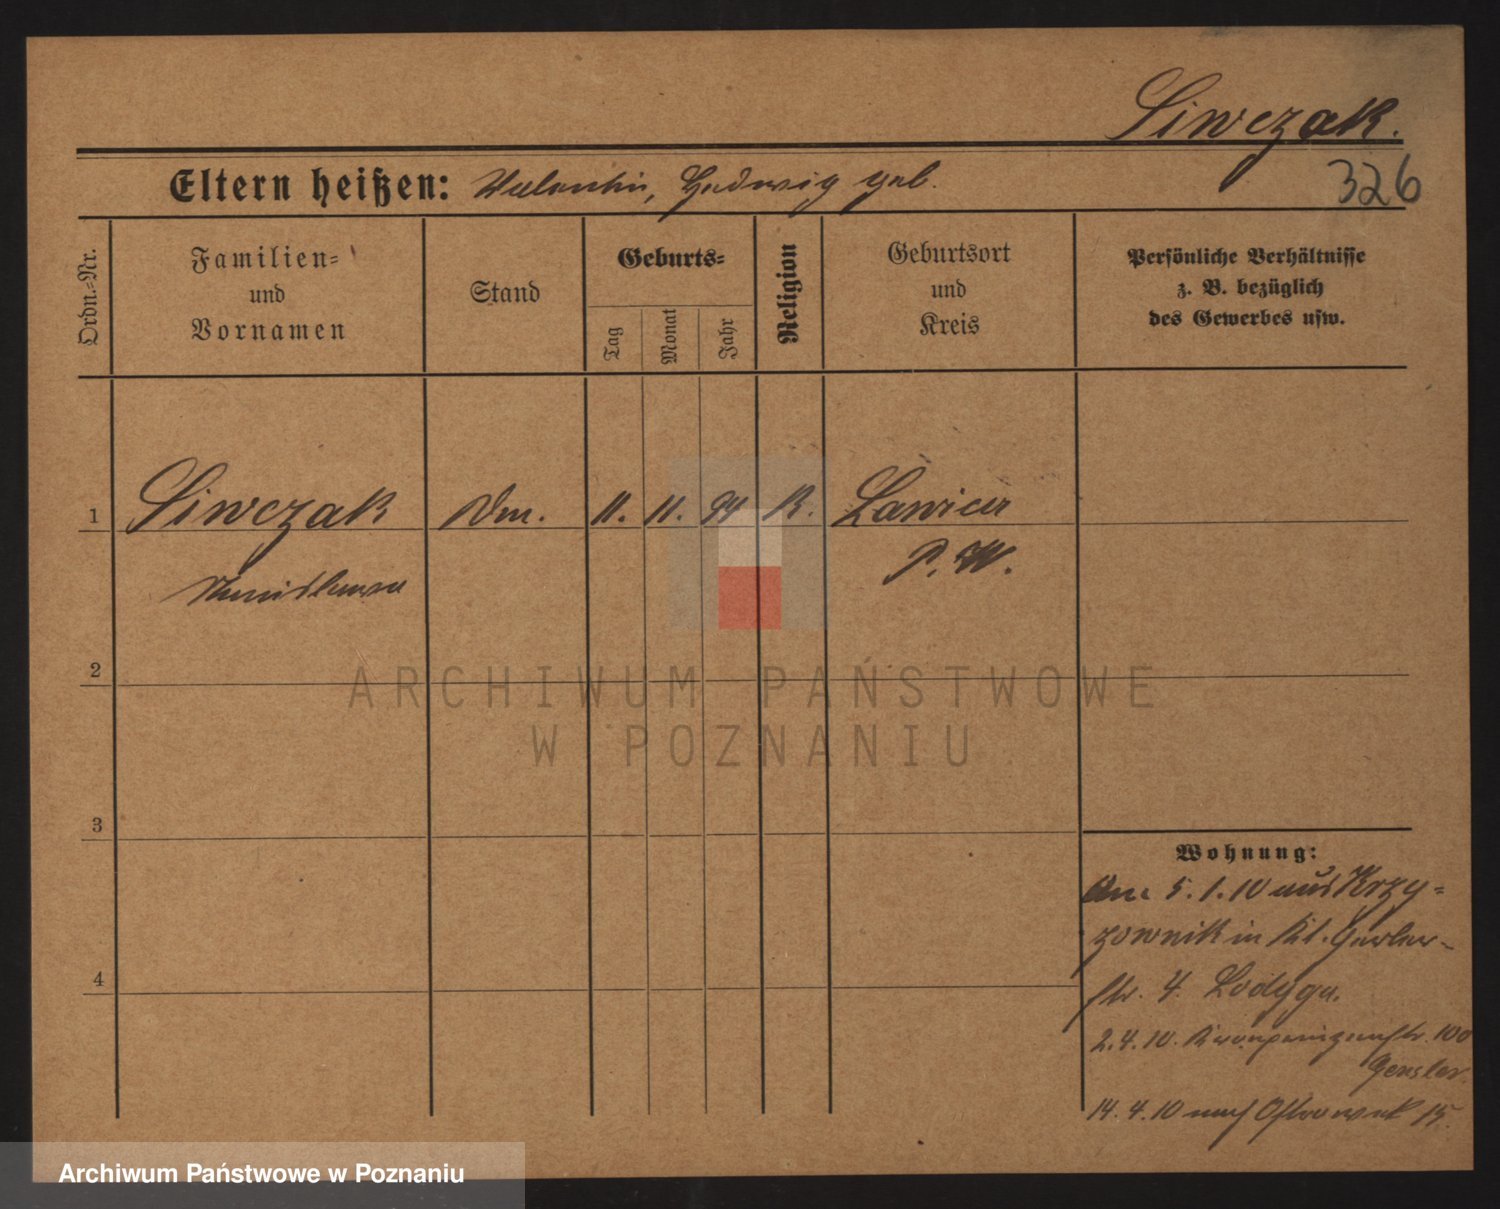 Siwczak.
326
Eltern heißen: Valentin, Hedwig geb.
Ordn.-Nr.
Familien-
und
Vornamen
Stand
Geburts-
Tag
Monat
Jahr
Religion
Geburtsort
und
Kreis
Persönliche Verhältnisse
z. B. bezüglich
des Gewerbes usw.
1 Siwczak 11. 11. 94 K. Lawica
Stanislawa P. W.
2
ARCHIWUM PAŃSTWOWE
W POZNANIU
3
4
Wohnung:
5.1.10 aus Krzy-
zownik in
str. 4. Lodyga.
2.4.10. Kronprinzenstr. 100
Gensler.
14.4.10 nach Ostrowek 15.
Archiwum Państwowe w Poznaniu